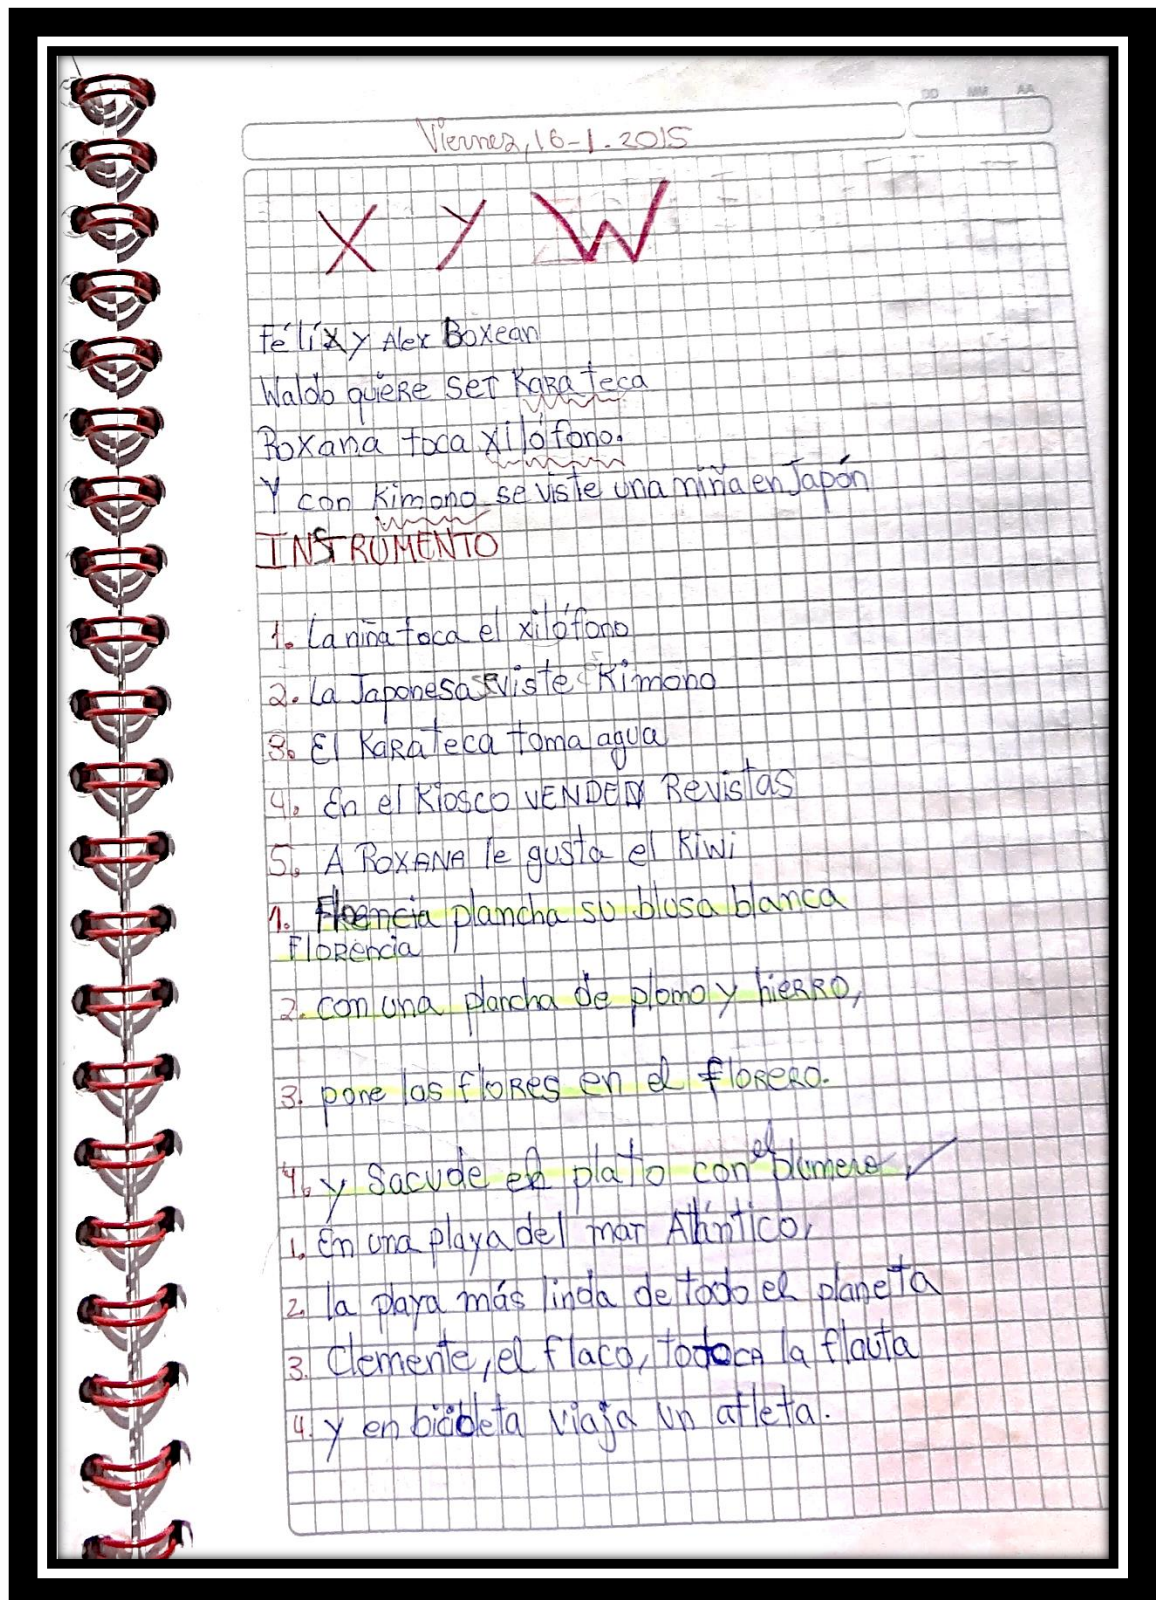 DD MM AA
Viernez, 16-1-2015
X y W
Félix y Alex Boxean
Waldo quiere ser Karateca
Roxana toca xilófono.
Y con Kimono se viste una niña en Japón
INSTRUMENTO
1. La niña toca el xilófono
2. La Japonesa viste Kimono
3. El Karateca toma agua
4. En el Kiosco VENDEN Revistas
5. A ROXANA le gusta el Kiwi
1. plancha su blusa blanca
Florencia
2. con una plancha de plomo y hierro,
3. pone las flores en el florero.
4. y Sacude el plato con el plumero
1. En una playa del mar Atlántico,
2. la playa más linda de todo el planeta
3. Clemente, el flaco, la flauta
4. y en viaja un atleta.